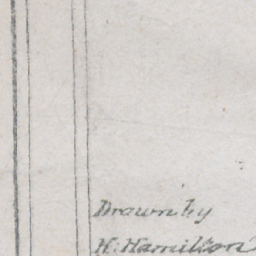 Drawn by
H. Hamilton